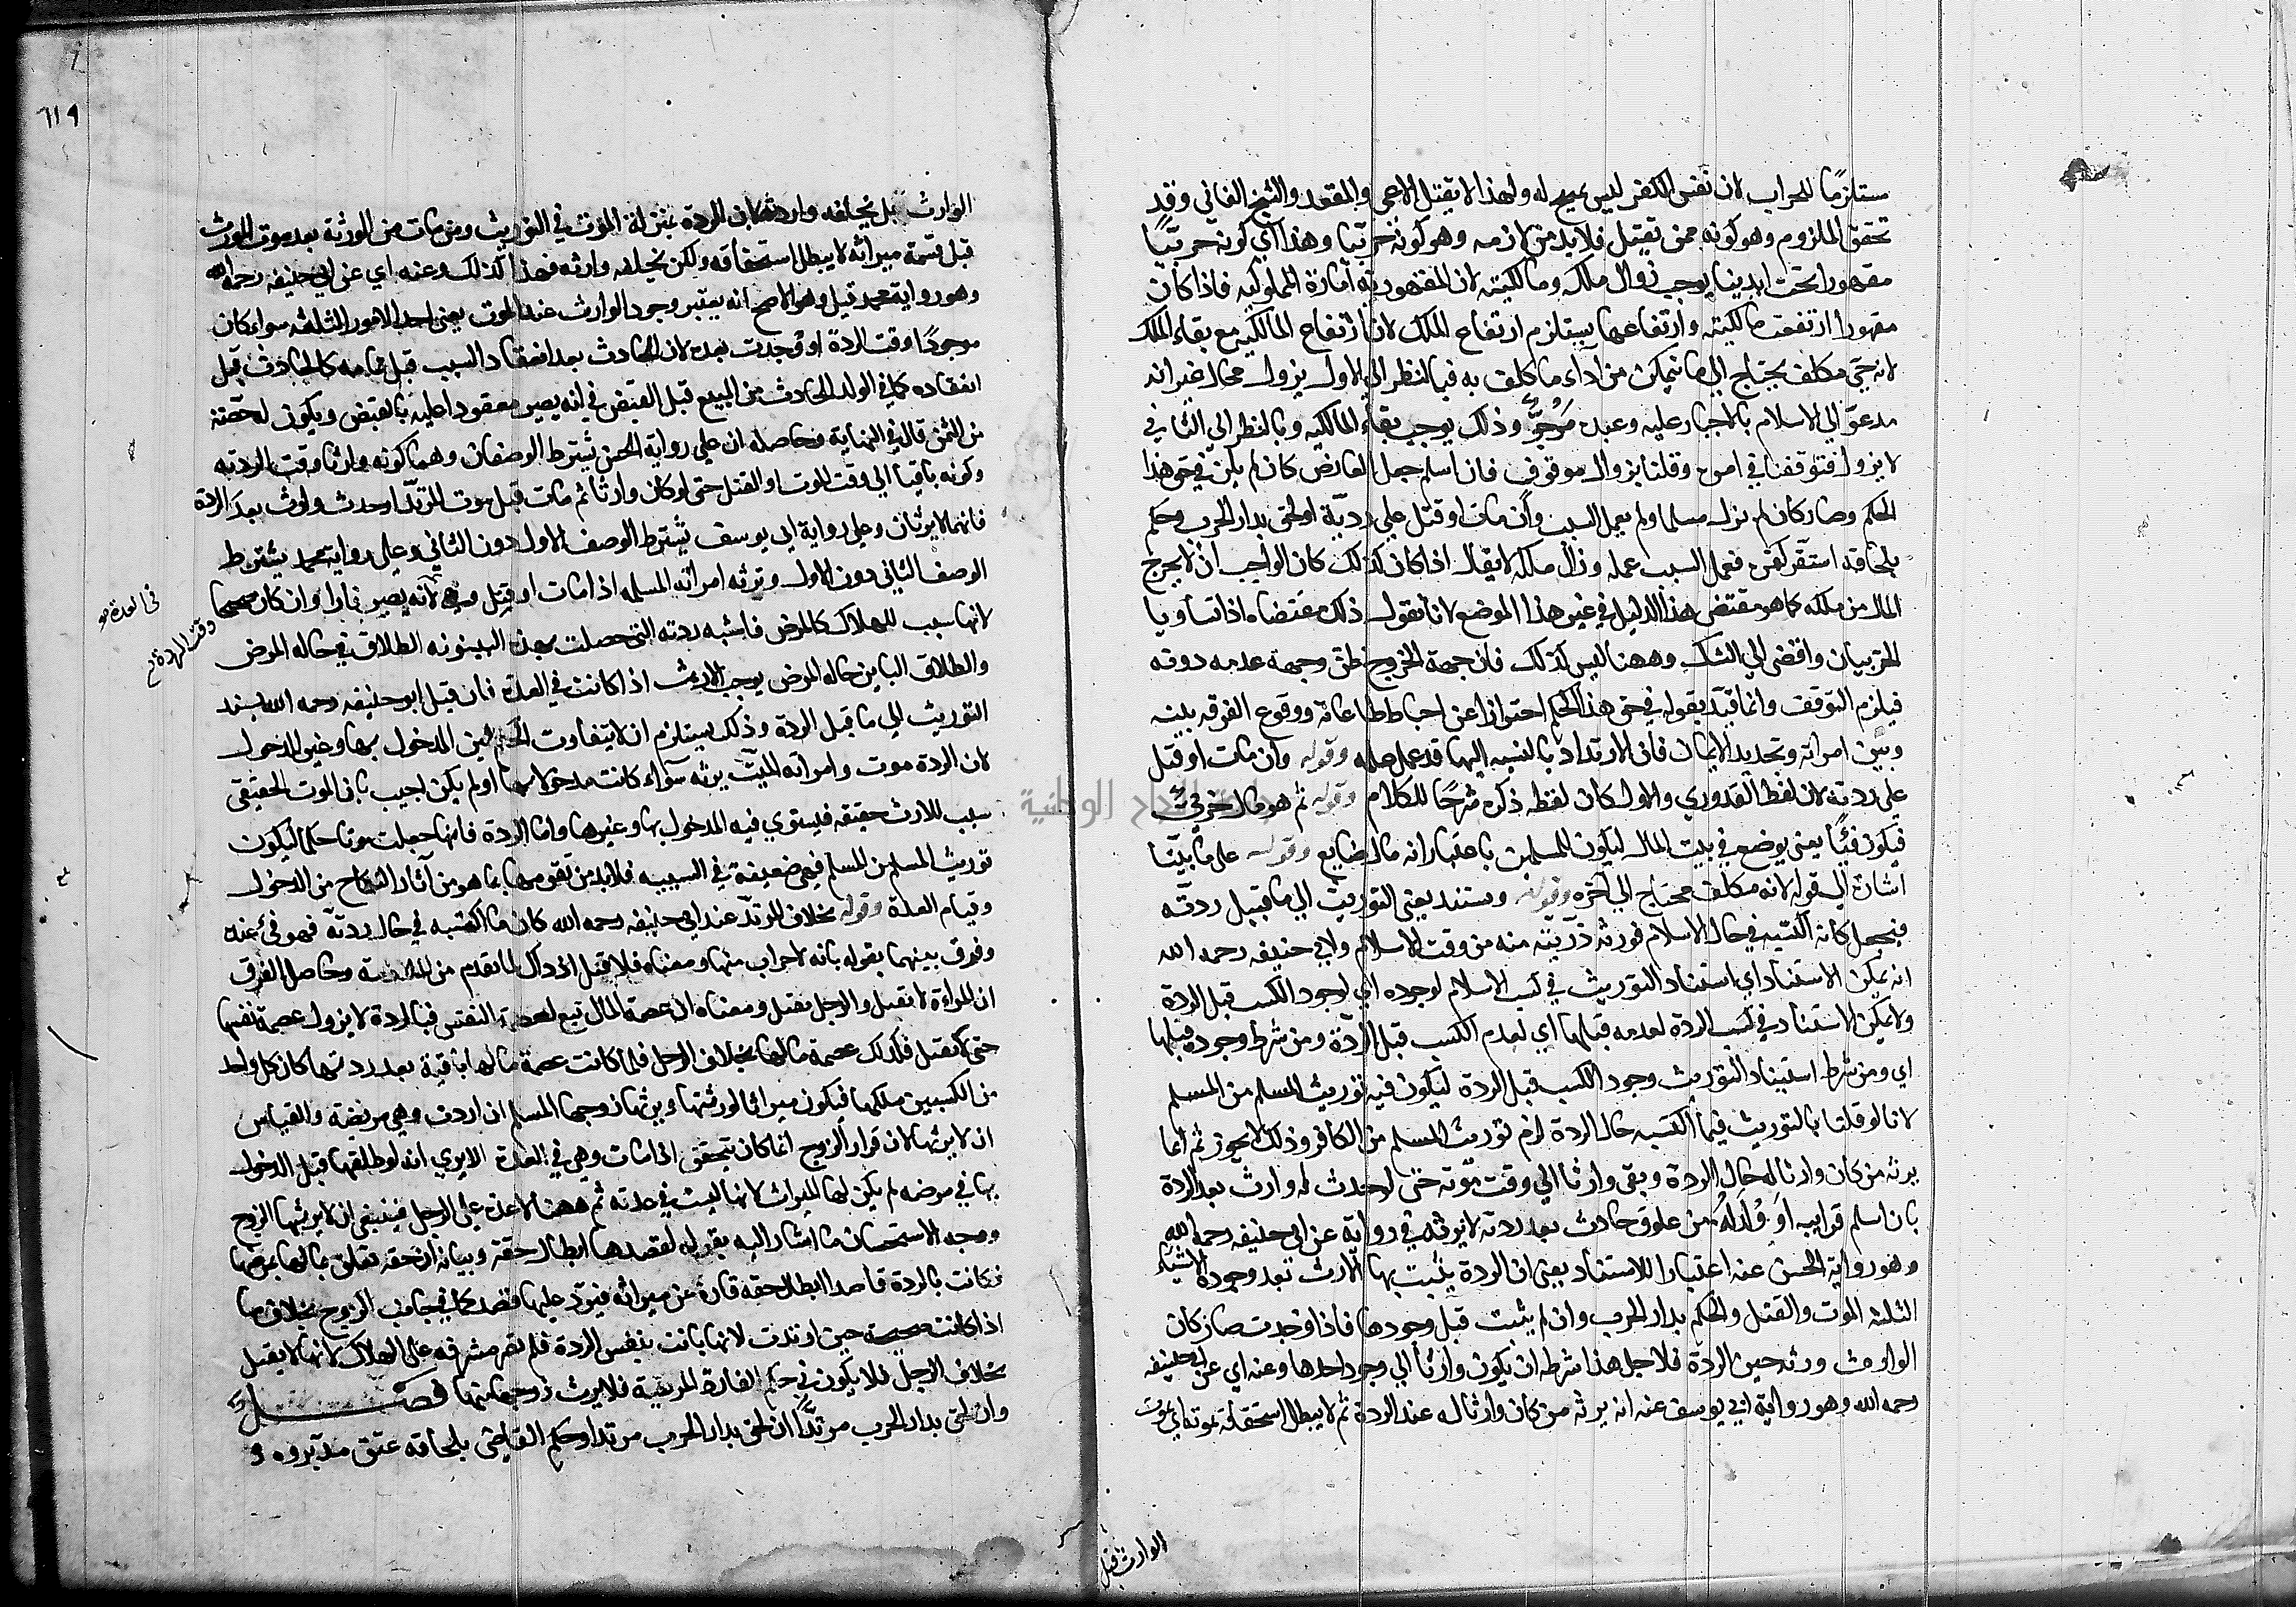 ستلزمًا للحراب لان نفس الكفر ليس بمبيح له ولهذا لا يقتل الاعمى والمقعد والشيخ الفاني وقد
تحقق الملزوم وهو كونه ممن يقتل فلا بد من لازمه وهو كونه حربيا وهذا اي كونه حربيًا
مقهورا تحت ايدينا يوجب زوال ملكه ومالكيته لان المقهورية امارة المملوكيه فاذا كان
مقهورا ارتفعت مالكيته وارتفاعها يستلزم ارتفاع الملك لان ارتفاع المالكية مع بقاء الملك
محال غير انه
مدعوّ الي الاسلام بالاجبار عليه وعوده مرجوٌّ وذلك يوجب بقاء المالكيه وبالنظر الي الثاني
لا يزول فتوقفنا في امره وقلنا بزوال موقوف فان اسلم جعل العارض كان لم يكن في حق هذا
الحكم وصار كان لم يزل مسلما ولم يعمل السبب وان مات او قتل علي ردته او لحق بدار الحرب وحكم
بلحاقه استقر كفره فعمل السبب عمله وزال ملكه لا يقال اذا كان كذلك كان الواجب ان لا يخرج
المال من ملكه كما هو مقتضى هذا الدليل في غير هذا الموضع لانا نقول ذلك مقتضاه اذا تساويا
وافضى الي الشك وههنا ليس كذلك فان جهة الخروج وجهة عدمه دونه
فيلزم التوقف وانما قيّد بقوله في حق هذا الحكم احترازا عن احباط طاعاته ووقوع الفرقه بينه
وبين امراته وتجديد الايمان فان الارتداد بالنسبه اليها قد عمل عمله وقوله وان مات او قتل
علي ردته لان لفظ القدوري والاول كان لفظه ذكره شرحًا للكلام وقوله ثم هو مال حربي
فيكون فيًا يعني يوضع في بيت المال ليكون للمسلمين باعتبار انه مال ضايع وقوله على ما بيّنا
اشارة الي قوله لانه مكلف محتاج الي اخره وقوله ويستند يعني التوريث الي ما قبيل ردته
فيجعل كانه اكتسبه في حال الاسلام فورثه ذريته منه من وقت الاسلام ولابي حنيفه رحمه الله
انه يمكن الاستناد اي استناد التوريث في كسب الاسلام لوجوده اي لوجود الكسب قبل الردة
ولا يمكن الاستناد في كسب الردة لعدمه قبلها اي لعدم الكسب قبل الردة ومن شرطه وجوده قبلها
اي ومن شرط استناد التوريث وجود الكسب قبل الردة ليكون فيه توريث المسلم من المسلم
لانا لو قلنا بالتوريث فيما اكتسبه حال الردة لزم توريث المسلم من الكافر وذلك لا يجوز ثم انما
يرثه من كان وارثا له حال الردة وبقي وارثا الي وقت موته حتى لو حدث له وارث بعد الردة
بان اسلم قرابيه او وُلد له من علوق حادث بعد ردته لا يرثه في رواية عن ابي حنيفه رحمه الله
وهو رواية الحسن عنه اعتبارا للاستناد يعني ان الردة يثبت بها الارث بعد وجود الاشياء
الثلثه الموت والقتل والحكم بدار الحرب وان لم يثبت قبل وجودها فاذا وجدت صار كان
الوارث ورثه حين الردة فلاجل هذا شرطه ان يكون وارثا الي وجود احدها وعنه اي عن ابي حنيفه
رحمه الله وهو رواية ابي يوسف عنه انه يرثه من كان وارثا له عند الردة ثم لا يبطل استحقاقه بموته اي بموت
الوارث قبل
٦١٩
الوارث بل يخلفه وارثه لان الردة بمنزلة الموت في التوريث ومن مات من الورثة بعد موت المورث
قبل قسمة ميراثه لا يبطل استحقاقه ولكن يخلفه وارثه فهذا كذلك وعنه اي عن ابي حنيفه رحمه الله
وهو رواية محمد قيل وهو الاصح انه يعتبر وجود الوارث عند الموت يعني احد الامور الثلثه سواء كان
موجودًا وقت الردة او وجدت بعده لان الحادث بعد انعقاد السبب قبل تمامه كالحادث قبل
انعقاده كما في الولد الحادث من المبيع قبل القبض في انه يصير معقودا عليه بالقبض ويكون له حصّة
من الثمن قال في النهاية وحاصله ان علي رواية الحسن يشترط الوصفان وهما كونه وارثا وقت الردته
وكونه باقيا الي وقت الموت او القتل حتى لو كان وارثا ثم مات قبل موت المرتد او حدث وارث بعد الردة
فانهما لا يرثان وعلي رواية ابي يوسف يشترط الوصف الاول دون الثاني وعلى رواية محمد يشترط
الوصف الثاني دون الاول وترثه امراته المسلمه اذا مات او قتل وهي لانه يصير فارا وان كان صحيحا
في العدة صح
وقت الردة صح
لانها سبب للهلاك كالمرض فاشبه ردته التي حصلت بهذه البينونه الطلاق في حاله المرض
والطلاق الباين حاله المرض يوجب الارث اذا كانت في العدة فان قيل ابو حنيفه رحمه الله يسند
التوريث الي ما قبل الردة وذلك يستلزم ان لا يتفاوت الحكم بين المدخول بها وغير المدخول
لان الردة موت وامراته الميت يرثه سواء كانت مدخولا بها او لم يكن اجيب بان الموت الحقيقي
سبب للارث حقيقه فيستوي فيه المدخول بها وغيرها واما الردة فانها جعلت موتا حكما ليكون
توريث المسلم من المسلم فهي ضعيفة في السببيه فلا بد من تقويمها بما هو من آثار النكاح من الدخول
وقيام العدة وقوله بخلاف المرتد عند ابي حنيفه رحمه الله كان ما اكتسبه في حال ردته فهو فيء عنده
وفرق بينهما بقوله بانه لا حراب منها ومعناه فلا قتل
ان المراة لا تقتل والرجل يقتل ومعناه ان عصمة المال تبع لعصمة النفس فبالردة لا يزول عصمة نفسها
حتى لا تقتل فكذلك عصمة مالها بخلاف الرجل فلما كانت عصمة مالها باقية بعد ردتها كان كل واحد
من الكسبين ملكها فيكون ميراثا لورثتها ويرثها زوجها المسلم ان ارتدت وهي مريضة والقياس
ان لا يرثها لان فرار الزوج انما كان يتحقق اذا مات وهي في العدة الا يري انه لو طلقها قبل الدخول
بها في مرضه لم يكن لها الميراث لانها ليست في عدته ثم ههنا لا عدة على الرجل فينبغي ان لا يرثها الزوج
ووجه الاستحسان ما اشار اليه بقوله لقصدها ابطال حقه وبيانه ان حقه تعلق بمالها بمرضها
فكانت بالردة قاصدا ابطال حقه فارة عن ميراثه فيرد عليها قصدها كما في جانب الزوج بخلاف ما
اذا كانت صحيحة حين ارتدت لانها بانت بنفس الردة فلم تصر مشرفه على الهلاك لانها لا يقتل
بخلاف الرجل فلا يكون في حكم الفارة المريضة فلا يرث زوجها منها فصل
وان لحق بدار الحرب مرتدًّا ان لحق بدار الحرب مرتدا وحكم القاضي بلحاقه عتق مدبروه و